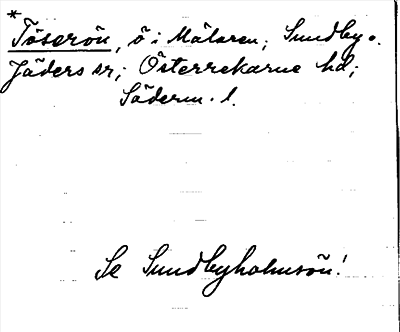 *
Töserön, ö i Mälaren; Sundby o.
Jäders sr; Österrekarne hd;
Söderm. l.
Se Sundbyholmsön!